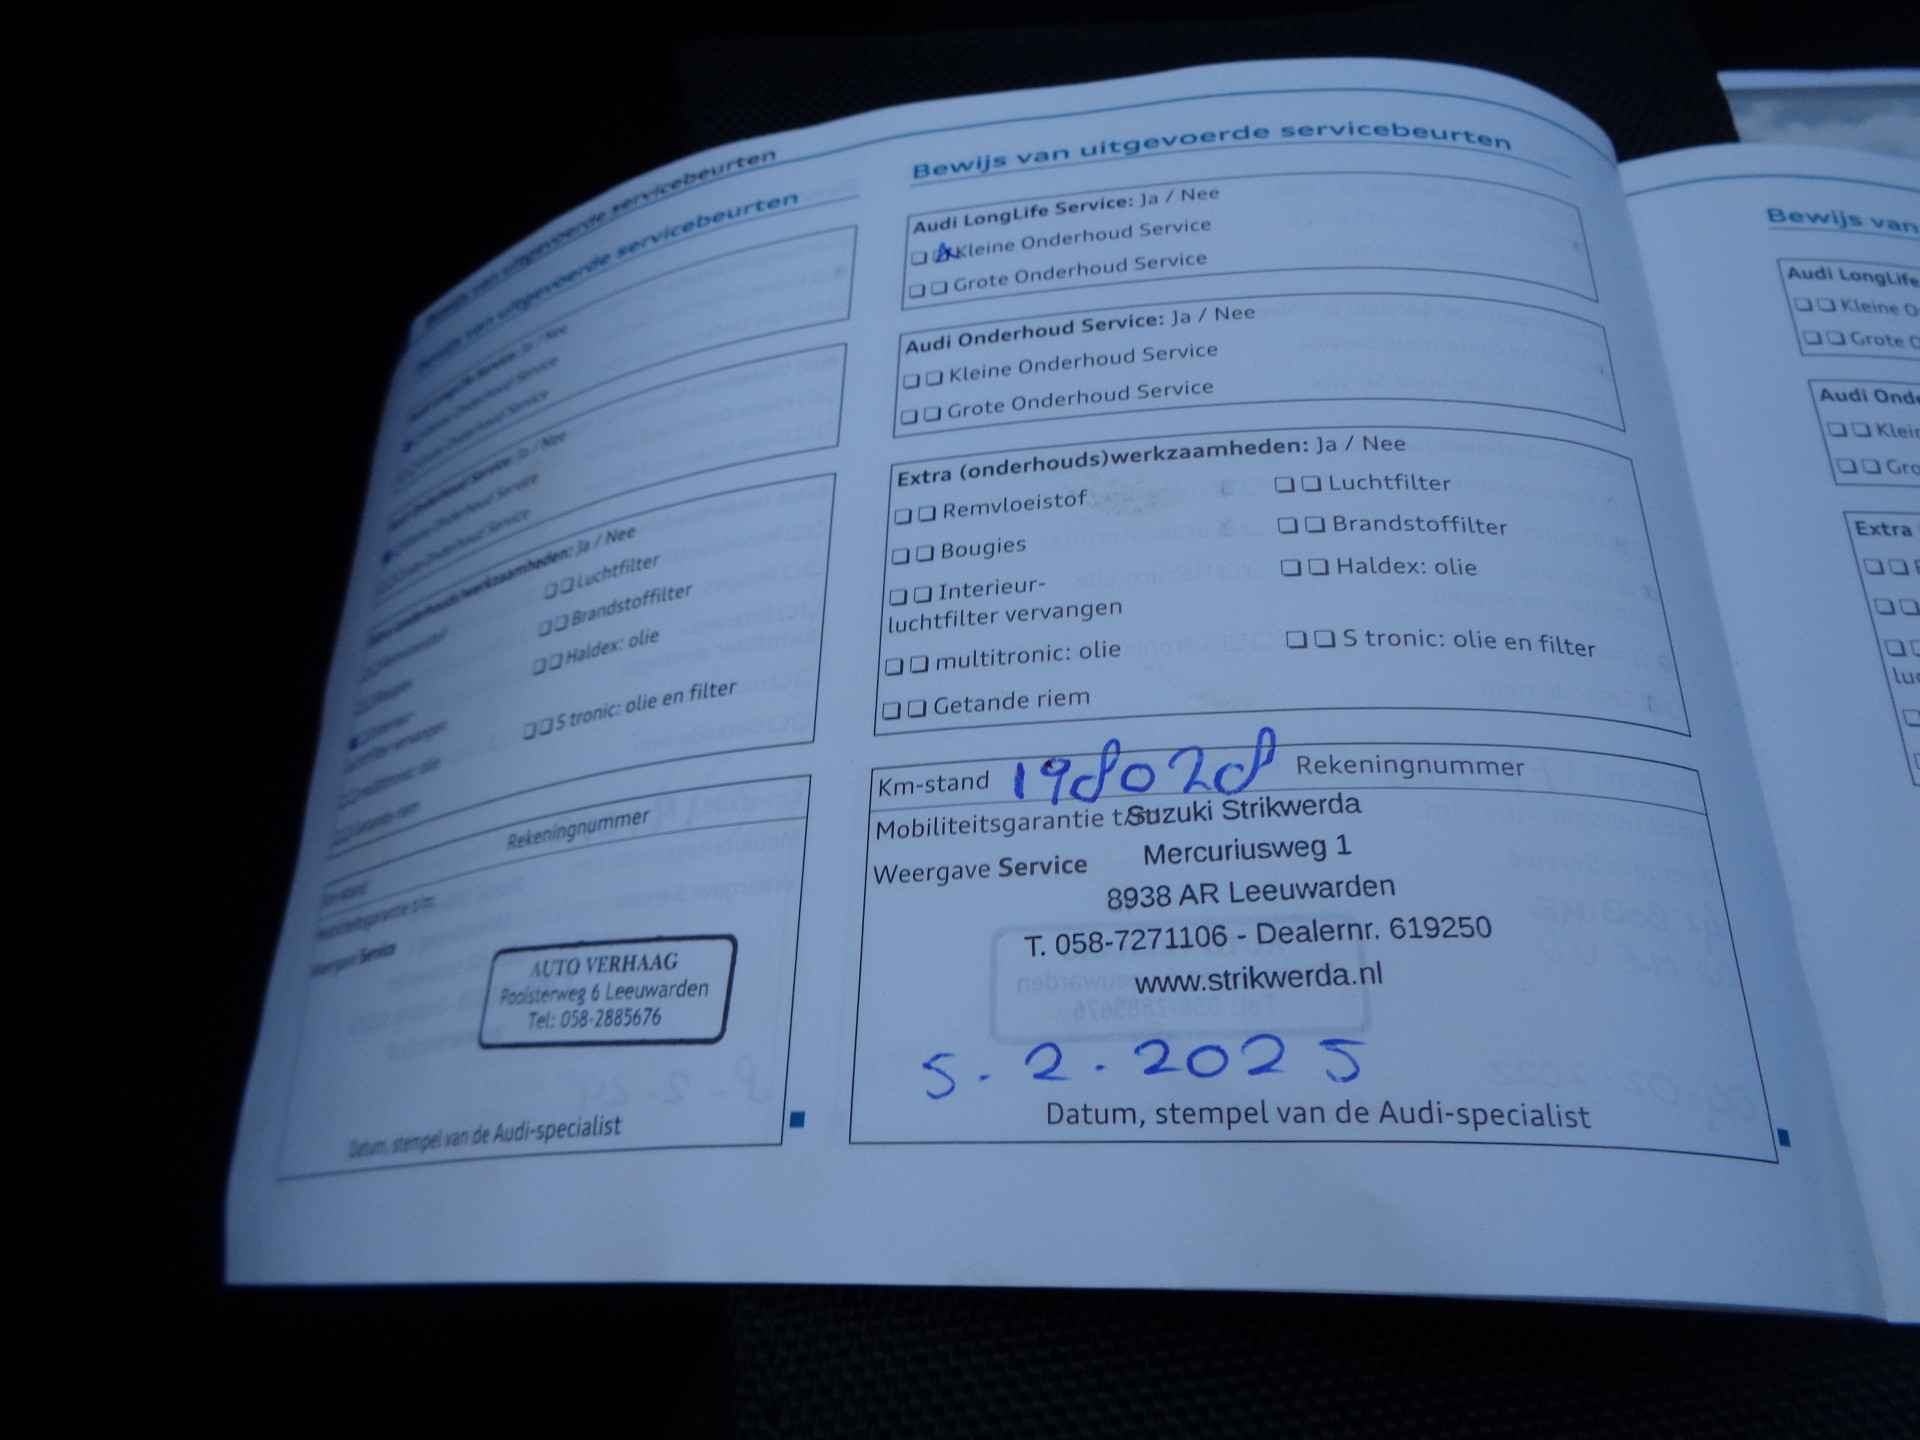 Bewijs van uitgevoerde servicebeurten
Bewijs van uitgevoerde servicebeurten
Ja / Nee
Kleine Onderhoud Service
Grote Onderhoud Service
Audi Onderhoud Service: Ja / Nee
Kleine Onderhoud Service
Grote Onderhoud Service
Extra (onderhouds)werkzaamheden: Ja / Nee
❏ ❏ Luchtfilter
❏ ❏ Brandstoffilter
❏ ❏ Haldex: olie
❏ ❏ S tronic: olie en filter
Km-stand Rekeningnummer
Mobiliteitsgarantie t/m:
Weergave Service
AUTO VERHAAG
Poolsterweg 6 Leeuwarden
Tel: 058-2885676
Datum, stempel van de Audi-specialist
Bewijs van uitgevoerde servicebeurten
Audi LongLife Service: Ja / Nee
❏ ❏ Kleine Onderhoud Service
❏ ❏ Grote Onderhoud Service
Audi Onderhoud Service: Ja / Nee
❏ ❏ Kleine Onderhoud Service
❏ ❏ Grote Onderhoud Service
Extra (onderhouds)werkzaamheden: Ja / Nee
❏ ❏ Remvloeistof ❏ ❏ Luchtfilter
❏ ❏ Bougies ❏ ❏ Brandstoffilter
❏ ❏ Interieur- ❏ ❏ Haldex: olie
luchtfilter vervangen
❏ ❏ multitronic: olie ❏ ❏ S tronic: olie en filter
❏ ❏ Getande riem
Km-stand 198028 Rekeningnummer
Mobiliteitsgarantie t/m:
Suzuki Strikwerda
Weergave Service
Mercuriusweg 1
8938 AR Leeuwarden
T. 058-7271106 - Dealernr. 619250
www.strikwerda.nl
5.2.2025
Datum, stempel van de Audi-specialist
Bewijs van
Audi LongLife
❏ ❏ Kleine O
❏ ❏ Grote O
Audi Onde
❏ ❏ Klein
❏ ❏ Gro
Extra